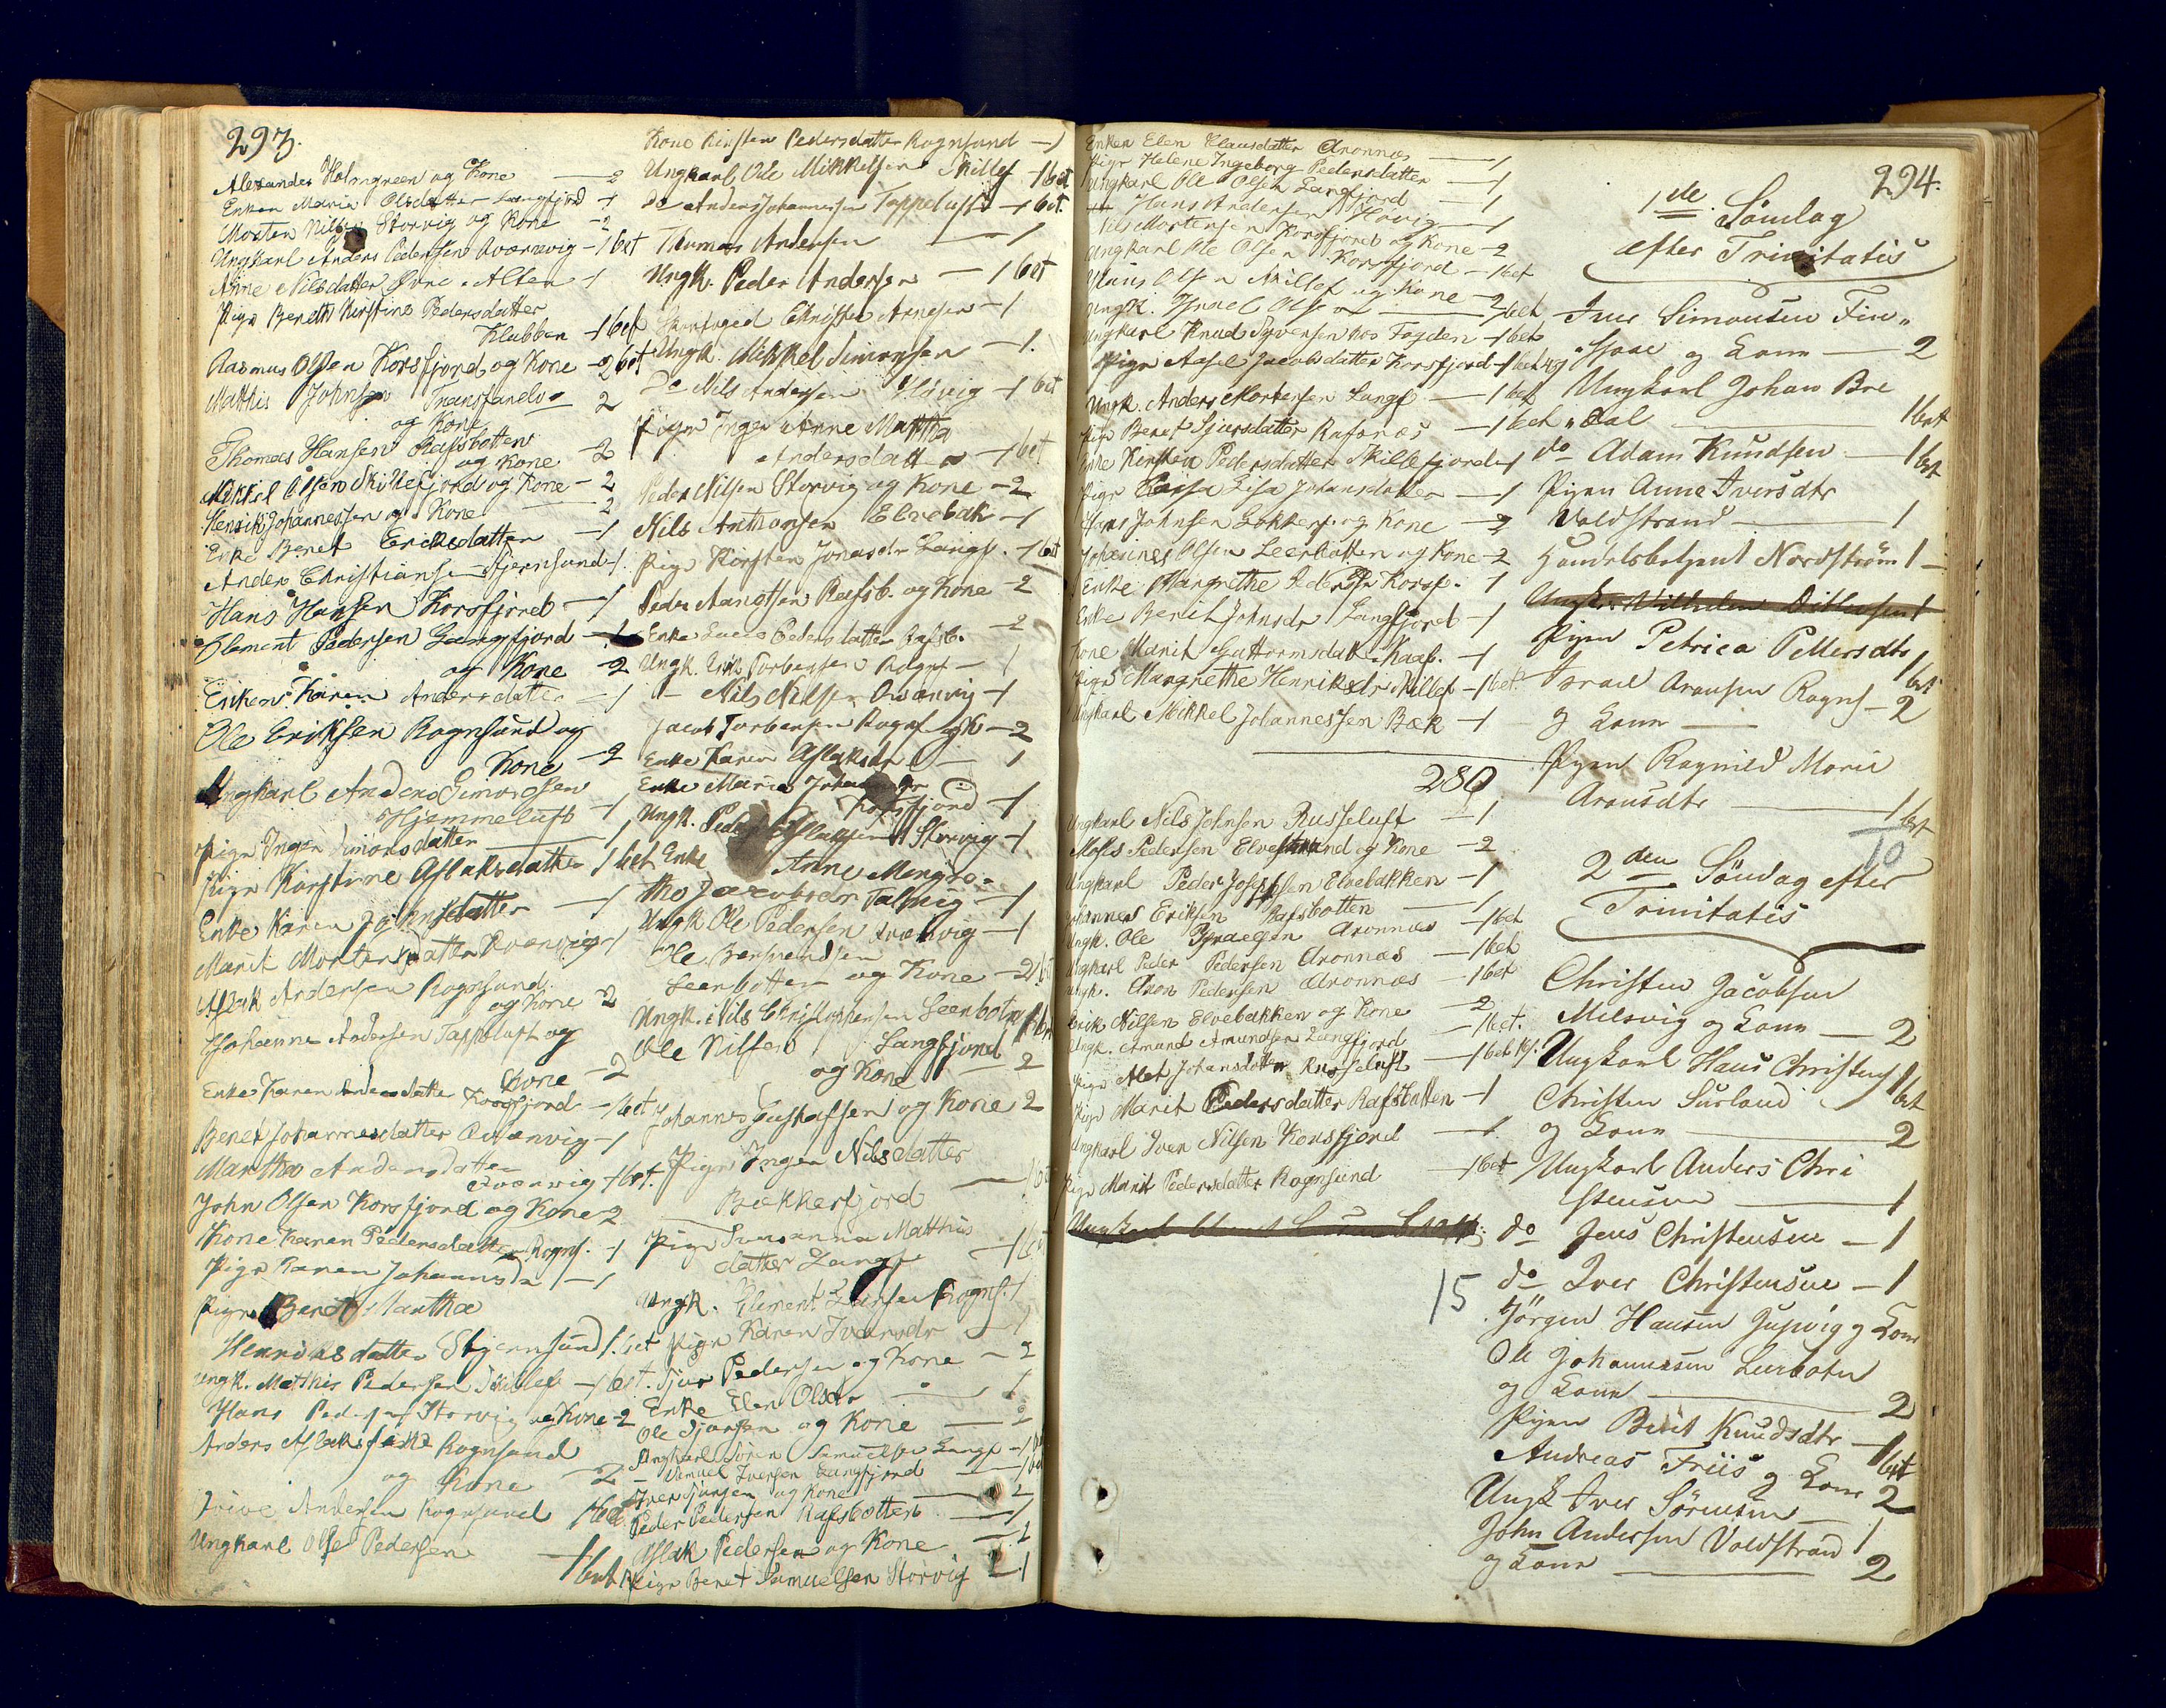 293.
Alexander Holmgreen og Kone — 2
Enken Maria Olsdatter Langfjord — 1
Morten Nilsen Storvig og Kone — 2
Ungkarl Anders Pedersen Qvænvig — 1 bet
Anne Nilsdatter Øvre Alten — 1
Pige Bereth Kirstine Pedersdatter
Klubben — 1 bet
Rasmus Olsen Korsfjord og Kone — 2 bet
Matthis Johnsen Transfarelv — 2
og Kone
Thomas Hansen Rafsbotten
og Kone — 2
Mikkel Olsen Skillefjord og Kone — 2
Henrik Johannessen og Kone — 2
Enke Beret Ericksdatter — 1
Anders Christiansen Stjernsund — 1.
Hans Hansen Korsfjord — 1
Clement Pedersen Langfjord —
og Kone — 2
Enken Karen Andersdatter — 1
Ole Eriksen Rognsund og
Kone — 2
Ungkarl Anders Simonsen
Hjemmeluft — 1
Pige Inger Simonsdatter — 1
Pige Kirstine Aslaksdatter 1 bet
Enke Karen Johnsdatter — 1
Marit Mortensdatter Qvænvig — 1
Aslak Andersen Rognsund
og Kone — 2
Johannes Andersen Tappeluft og
Kone — 2
Enke Karen Andersdatter Korsfjord — 1 bet
Beret Johannesdatter Qvænvig — 1
Martha Andersdatter
Qvænvig — 1 bet.
John Olsen Korsfjord og Kone 2
Kone Karen Pedersdatter Rogns. — 1
Pige Karen Johannsdr — 1
Pige Beret Martha
Henriksdatter Stjernsund 1. bet
Ungk. Mathis Pedersen Skillef — 1 bet.
Hans Pedersen Storvig og Kone — 2
Anders Aslaksen Rognsund
og Kone — 2
Andersen Rognsund 1 bet
Ungkarl Ole Pedersen — 1 bet
Kone Kirsten Pedersdatter Rognsund — 1
Ungkarl Ole Mikkelsen Skillef — 1 bet
Do Anders Johannesen Tappeluft — 1 bet.
Thomas Andersen — 1
Ungk. Peder Andersen — 1 bet
Christen Arnesen — 1
Ungk. Mikkel Simonsen — 1.
Do Nils Andersen — 1 bet
Pige Inger Anne Martha
Andersdatter — 1 bet
Peder Nilsen Storvig og Kone — 2
Nils Anthonsen Elvebak — 1
Pige Kirsten Jonasdr Langf. — 1 bet
Peder Rafsb. og Kone — 2
Enke Pedersdatter Rafsb. — 2
Ungk. Erik Torbersen Rognf — 1
— Nils Nilsen Qvænvig — 1
Jacob Torbersen Rognf og K — 2
Enke Karen Aslaksdr — 1
Enke Maria
Korsfjord — 1
Ungk. Peder Aslaksen Storvig — 1
Enke Anne Mergre-
the Jacobsdr Talvig — 1
Ungk Ole Pedersen Qvænvig — 1
Ole Berntsen
Leerbotten og Kone — 2 bet
Ungk. Nils Christophersen Leerbotn 1 bet
Ole Nilsen Langfjord
og Kone — 2
Johannes Gustafsen og Kone 2
Pige Inger Nilsdatter
Bekkerfjord — 1 bet
Pige Susanna Matthis
datter Langf — 1 bet
Ungk. Clement Larsen Rogns. 1
Pige Karen Iversdr — 1
Sjur Pedersen og Kone — 2
Enke Elen Olsdr — 1
Ole Sjursen og Kone — 2
Ungkarl Sören Samuelsen Langf — 1 bet
— Samuel Iversen Langfjord — 1 bet
Iver Sjursen og Kone — 2
Peder Pedersen Rafsbotten — 1
Aslak Pedersen og Kone — 2
Pige Beret Samuelsen Storvig — 1
294.
Enken Elen Klausdatter Aronnæs — 1
Pige Helene Ingeborg Pedersdatter — 1
Ungkarl Ole Olsen Langfjord — 1
Hans Andersen Storvig — 1
Nils Mortensen Korsfjord og Kone — 2
Ungkarl Ole Olsen Korsfjord — 1 bet
Hans Olsen Skillef og Kone — 2
Ungk. Israel Olsen — 1 bet
Ungkarl Knud Syversen hos Fogden — 1 bet
Pige Aasel Jacobsdatter Korsfjord — 1 bet
Ungk. Anders Mortensen Langf — 1 bet
Pige Beret Sjursdatter Rafsnæs — 1 bet
Enke Kirsten Pedersdatter Skillefjord — 1
Pige Lisa Johansdatter — 1
Hans Johnsen Lokkerf. og Kone — 2
Johannes Olsen Leerbotten og Kone — 2
Enke Margrethe Pedersdr Korsf. — 1
Enke Bereth Johnsdr Langfjord — 1
Kone Marit Guttormsdat. Kaaf. — 1
Pige Margrethe Henriksdr Skillef — 1 bet.
Ungkarl Mikkel Johannessen Bæk — 1
280
Ungkarl Nils Johnsen Russeluft — 1
Moses Pedersen Elvestrand og Kone — 2
Ungkarl Peder Josephsen Elvebakken — 1
Johannes Eriksen Rafsbotten — 1
Ungk. Ole Israelsen Aronnæs — 1 bet
Ungkarl Peder Pedersen Aronnæs — 1 bet
Ungk. Aron Pedersen Aronnæs — 1 bet
Erik Nilsen Elvebakken og Kone — 2
Ungk. Amund Amundsen Langfjord — 1 bet.
Pige Alet Johansdatter Russeluft — 1 bet
Pige Marit Pedersdatter Rafsbotten — 1
Ungkarl Iver Nilsen Korsfjord — 1
Pige Marit Pedersdatter Rognsund — 1 bet
15
1de Söndag
efter Trinitatis
Iver Simonsen Fin„
og Kone — 2
Ungkarl Johan Bre
„dal — 1 bet
do Adam Knudsen — 1 bet
Pigen Anne Iversdtr
Voldstrand — 1
Handelsbetjent Nordström 1 —
Ungkr. Vilhelm Ditlevsen 1
Pigen Petrica Pettersdtr 1 bet
Israel Aronsen Rogns — 2
og Kone —
Pigen Ragnild Marie
Aronsdtr — 1 bet
10
2den Söndag efter
Trinitatis
Christen Jacobsen
Melsvig og Kone — 2
Ungkarl Hans Christens 1 bet
Christen Surland
og Kone — 2
Ungkarl Anders Chri
stensen — 1
do Jens Christensen — 1
do Iver Christensen — 1
Jörgen Hansen og Kone
Ole Johannesen Leerbotn
og Kone — 2
Pigen Berit Knudsdtr — 1 bet
Andreas Friis og Kone 2
Ungk Iver Sörensen — 1
John Andersen Voldstrand
og Kone — 2